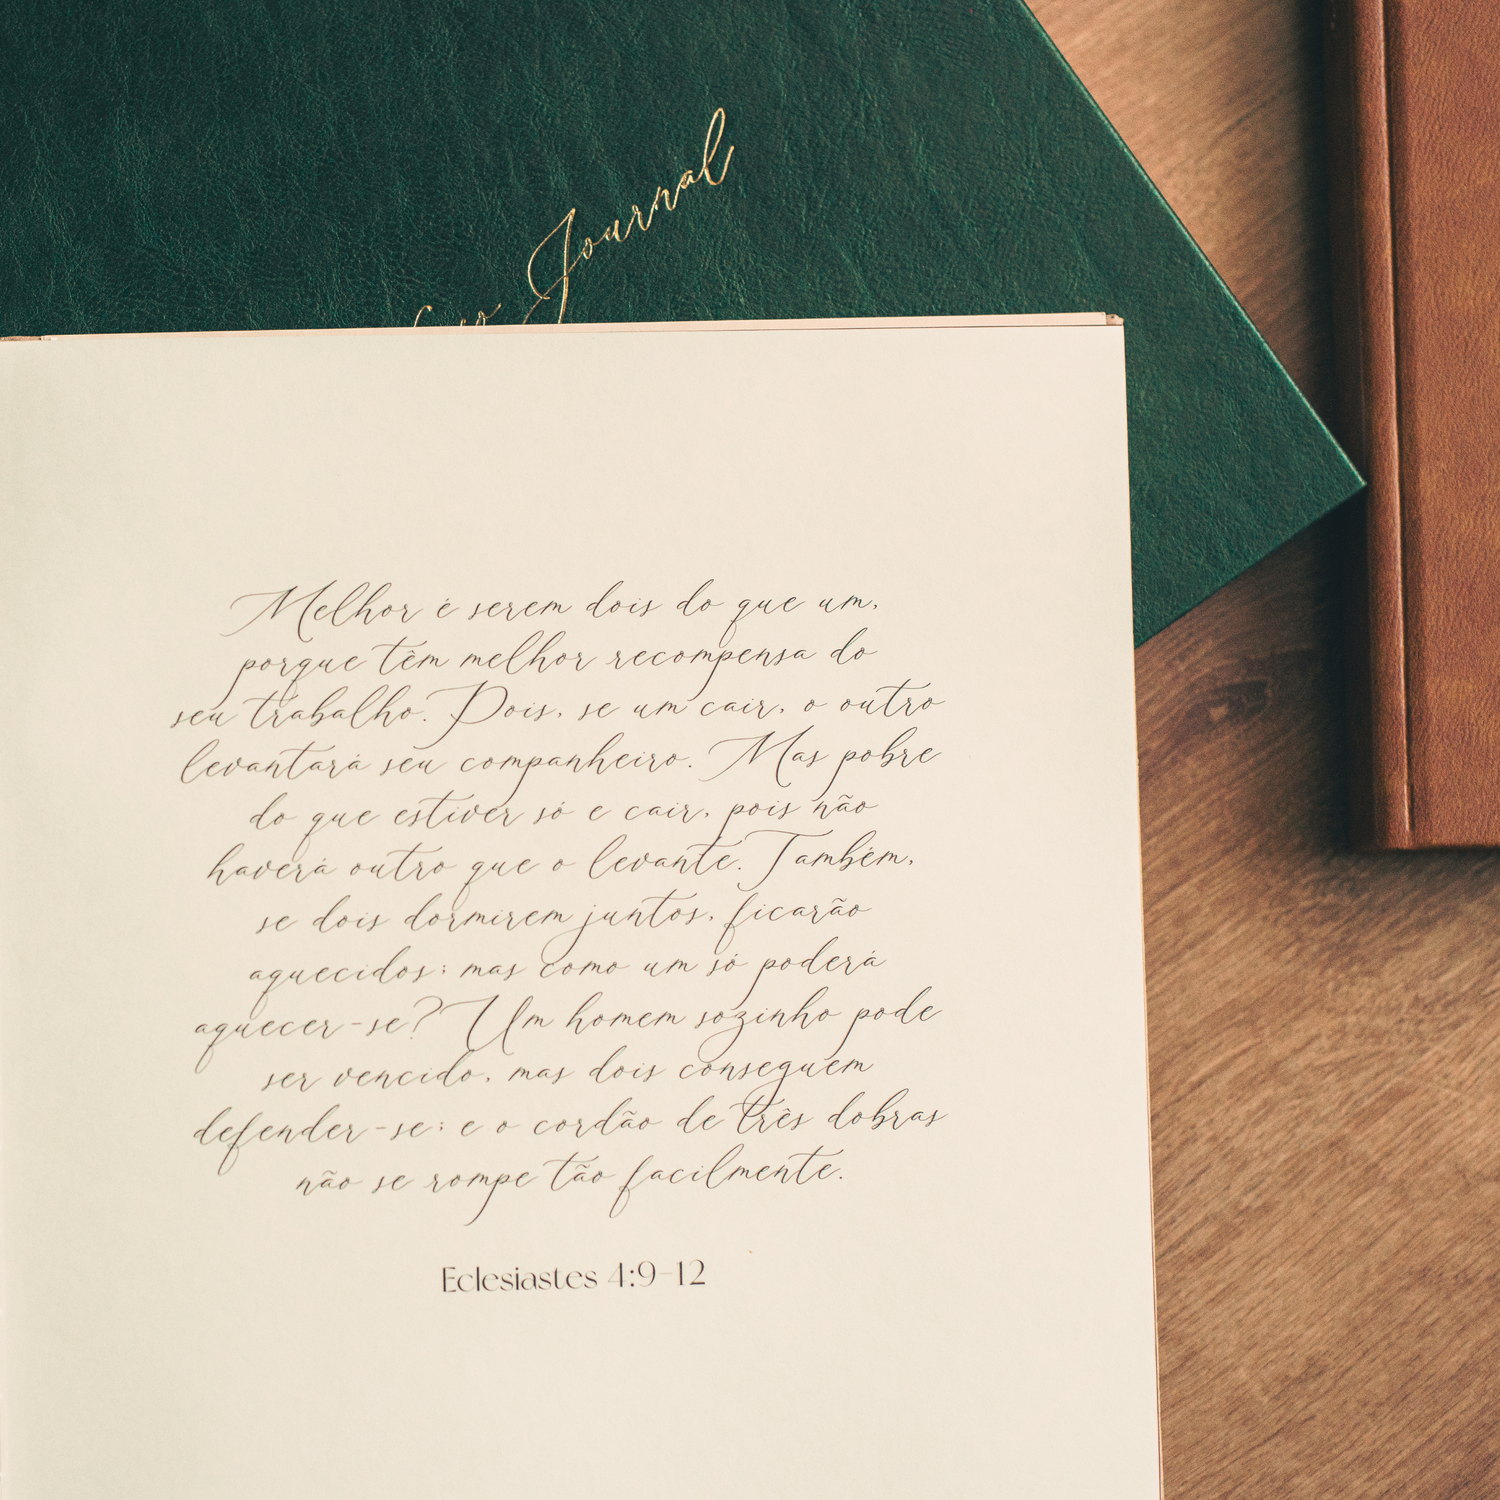 Journal
Melhor é serem dois do que um,
porque têm melhor recompensa do
seu trabalho. Pois, se um cair, o outro
levantará seu companheiro. Mas pobre
do que estiver só e cair, pois não
haverá outro que o levante. Também,
se dois dormirem juntos, ficarão
aquecidos; mas como um só poderá
aquecer-se? Um homem sozinho pode
ser vencido, mas dois conseguem
defender-se; e o cordão de três dobras
não se rompe tão facilmente.
Eclesiastes 4:9-12